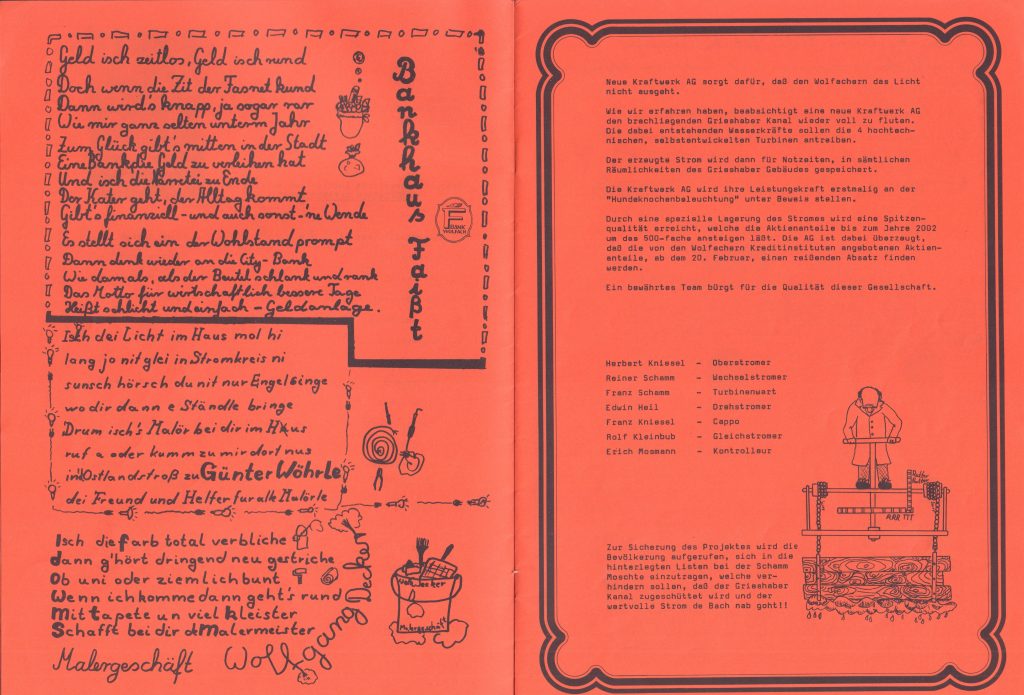 Geld isch zeitlos, Geld isch rund
Doch wenn die Zit der Fasnet kund
Dann wird's knapp, ja sogar rar
Wie mir ganz selten unterm Jahr
Zum Glück gibt's mitten in der Stadt
Eine Bank die Geld zu verleihen hat
Und isch die Narretei zu Ende
Der Kater geht, der Alltag kommt
Gibt's finanziell - und auch sonst - 'ne Wende
Es stellt sich ein der Wohlstand prompt
Dann denk wieder an die City-Bank
Wie damals, als der Beutel schlank und rank
Das Motto für wirtschaftlich bessere Tage
Heißt schlicht und einfach - Geldanlage.
Bankhaus Faißt
F
BANK
WOLFACH
Isch dei Licht im Haus mol hi
lang jo nit glei in Stromkreis ni
sunsch hörsch du nit nur Engel singe
wo dir dann e Ständle bringe
Drum isch's Malör bei dir im Haus
ruf a oder kumm zu mir dort nus
in Ostlandstroß zu Günter Wöhrle
dei Freund und Helfer für alle Malörle
Isch die farb total verbliche
dann g'hört dringend neu gestriche
Ob uni oder ziemlich bunt
Wenn ich komme dann geht's rund
Mit tapete un viel kleister
Schafft bei dir de Malermeister
Malergeschäft Wolfgang Decker
Decker
Malergeschäft
Neue Kraftwerk AG sorgt dafür, daß den Wolfachern das Licht
nicht ausgeht.
Wie wir erfahren haben, beabsichtigt eine neue Kraftwerk AG
den brachliegenden Grieshaber Kanal wieder voll zu fluten.
Die dabei entstehenden Wasserkräfte sollen die 4 hochtech-
nischen, selbstentwickelten Turbinen antreiben.
Der erzeugte Strom wird dann für Notzeiten, in sämtlichen
Räumlichkeiten des Grieshaber Gebäudes gespeichert.
Die Kraftwerk AG wird ihre Leistungskraft erstmalig an der
"Hundeknochenbeleuchtung" unter Beweis stellen.
Durch eine spezielle Lagerung des Stromes wird eine Spitzen-
qualität erreicht, welche die Aktienanteile bis zum Jahre 2002
um das 500-fache ansteigen läßt. Die AG ist dabei überzeugt,
daß die von den Wolfachern Kreditinstituten angebotenen Aktien-
anteile, ab dem 20. Februar, einen reißenden Absatz finden
werden.
Ein bewährtes Team bürgt für die Qualität dieser Gesellschaft.
Herbert Kniesel - Oberstromer
Reiner Schamm - Wechselstromer
Franz Schamm - Turbinenwart
Edwin Heil - Drehstromer
Franz Kniesel - Cappo
Rolf Kleinbub - Gleichstromer
Erich Mosmann - Kontrolleur
ARR TTT
Zur Sicherung des Projektes wird die
Bevölkerung aufgerufen, sich in die
hinterlegten Listen bei der Schamm
Moschte einzutragen, welche ver-
hindern sollen, daß der Grieshaber
Kanal zugeschüttet wird und der
wertvolle Strom de Bach nab goht!!